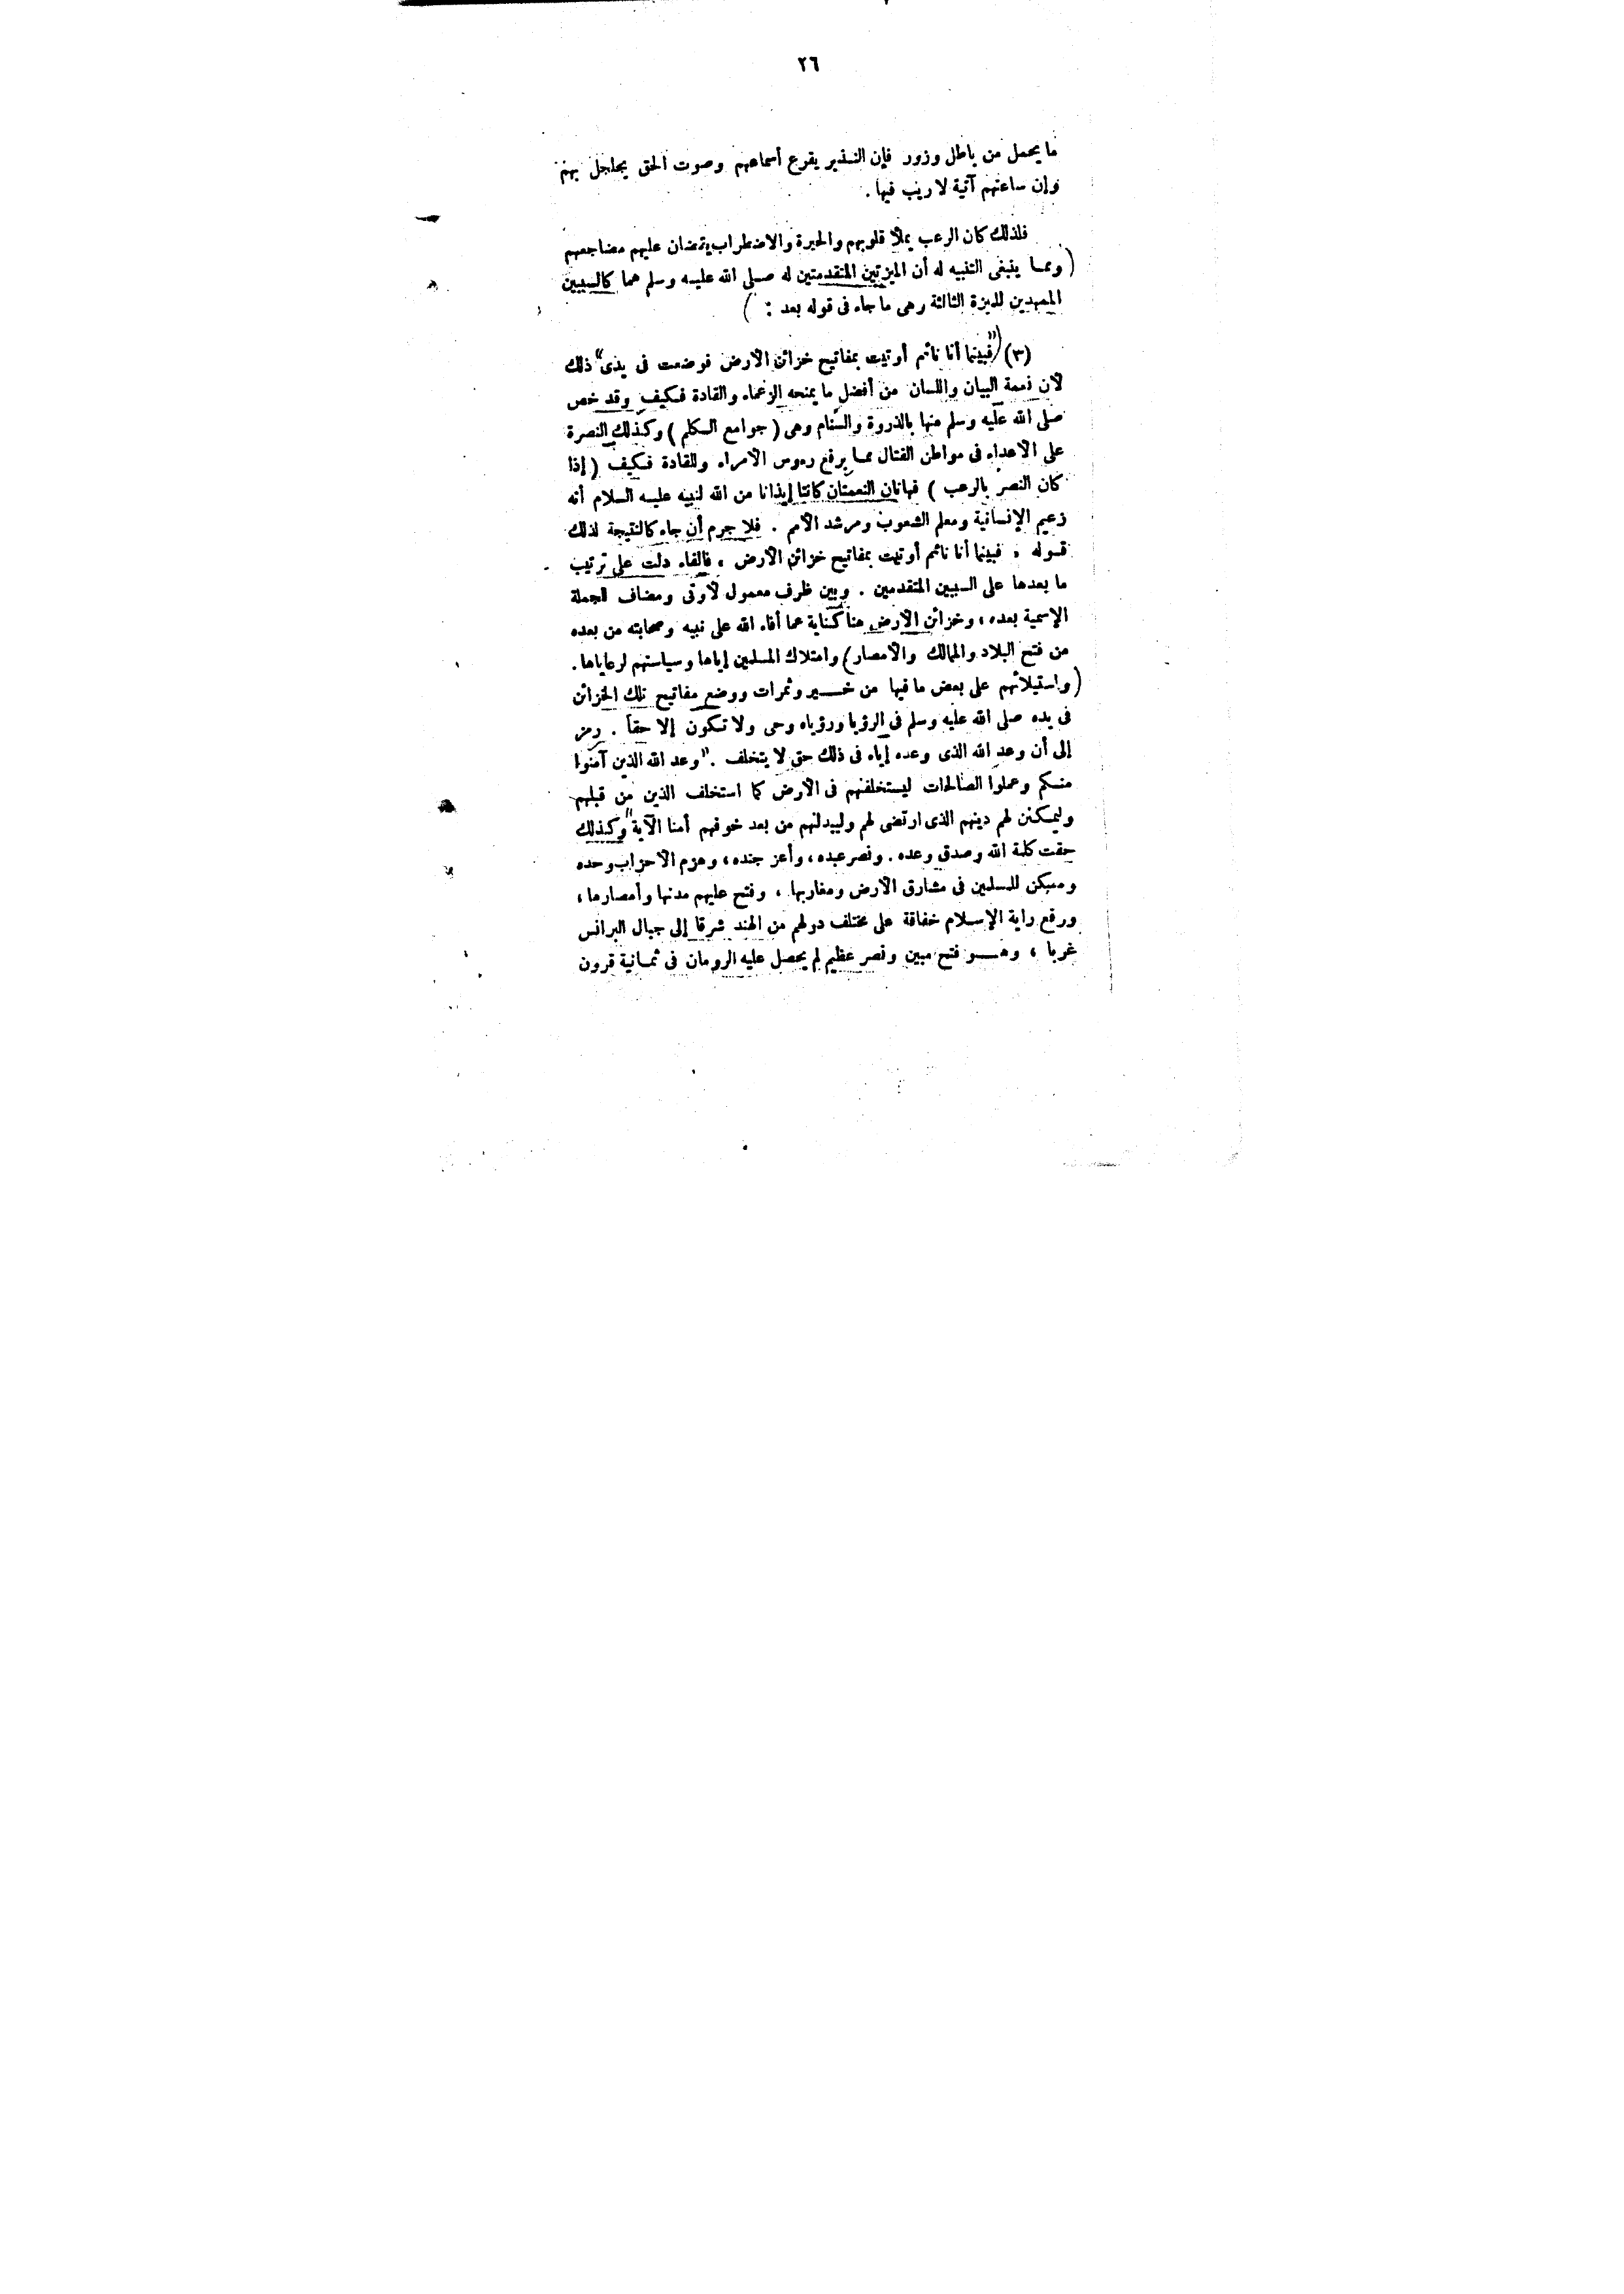 ٢٦
ما يحمل من باطل وزور فإن النذير يقرع أسماعهم وصوت الحق يجلجل بهم
وإن ساعتهم آتية لا ريب فيها .
فلذلك كان الرعب يملأ قلوبهم والحيرة والاضطراب يقضان عليهم مضاجعهم
( ومما ينبغى التنبيه له أن الميزتين المتقدمتين له صلى الله عليه وسلم هما كالسببين
الممهدين للميزة الثالثة وهى ما جاء فى قوله بعد : )
(٣) ( " فبينما أنا نائم أوتيت بمفاتيح خزائن الأرض فوضعت فى يدى " ذلك
لأن نعمة البيان واللسان من أفضل ما يمنحه الزعماء والقادة فكيف وقد خص
صلى الله عليه وسلم منها بالذروة والسنام وهى ( جوامع الكلم ) وكذلك النصرة
على الأعداء فى مواطن القتال مما يرفع رءوس الأمراء والقادة فكيف ( إذا
كان النصر بالرعب ) فهاتان النعمتان كانتا إيذانا من الله لنبيه عليه السلام أنه
زعيم الإنسانية ومعلم الشعوب ومرشد الأمم . فلا جرم أن جاء كالنتيجة لذلك
قوله . فبينما أنا نائم أوتيت بمفاتيح خزائن الأرض ، فالفاء دلت على ترتيب
ما بعدها على السببين المتقدمين . وبين ظرف معمول لأوتى ومضاف للجملة
الإسمية بعده ، وخزائن الأرض هنا كناية عما أفاء الله على نبيه وصحابته من بعده
من فتح البلاد والممالك والأمصار ) وامتلاك المسلمين إياها وسياستهم لرعاياها .
( واستيلائهم على بعض ما فيها من خير وثمرات ووضع مفاتيح تلك الخزائن
فى يده صلى الله عليه وسلم فى الرؤيا ورؤياه وحى ولا تكون إلا حقا . رمز
إلى أن وعد الله الذى وعده إياه فى ذلك حق لا يتخلف . " وعد الله الذين آمنوا
منكم وعملوا الصالحات ليستخلفنهم فى الأرض كما استخلف الذين من قبلهم
وليمكنن لهم دينهم الذى ارتضى لهم وليبدلنهم من بعد خوفهم أمنا الآية " وكذلك
حقت كلمة الله وصدق وعده . ونصر عبده ، وأعز جنده ، وهزم الأحزاب وحده
ومكن للمسلمين فى مشارق الأرض ومغاربها ، وفتح عليهم مدنها وأمصارها ،
ورفع راية الإسلام خفاقة على مختلف دولهم من الهند شرقا إلى جبال البرانس
غربا ، وهو فتح مبين ونصر عظيم لم يحصل عليه الرومان فى ثمانية قرون